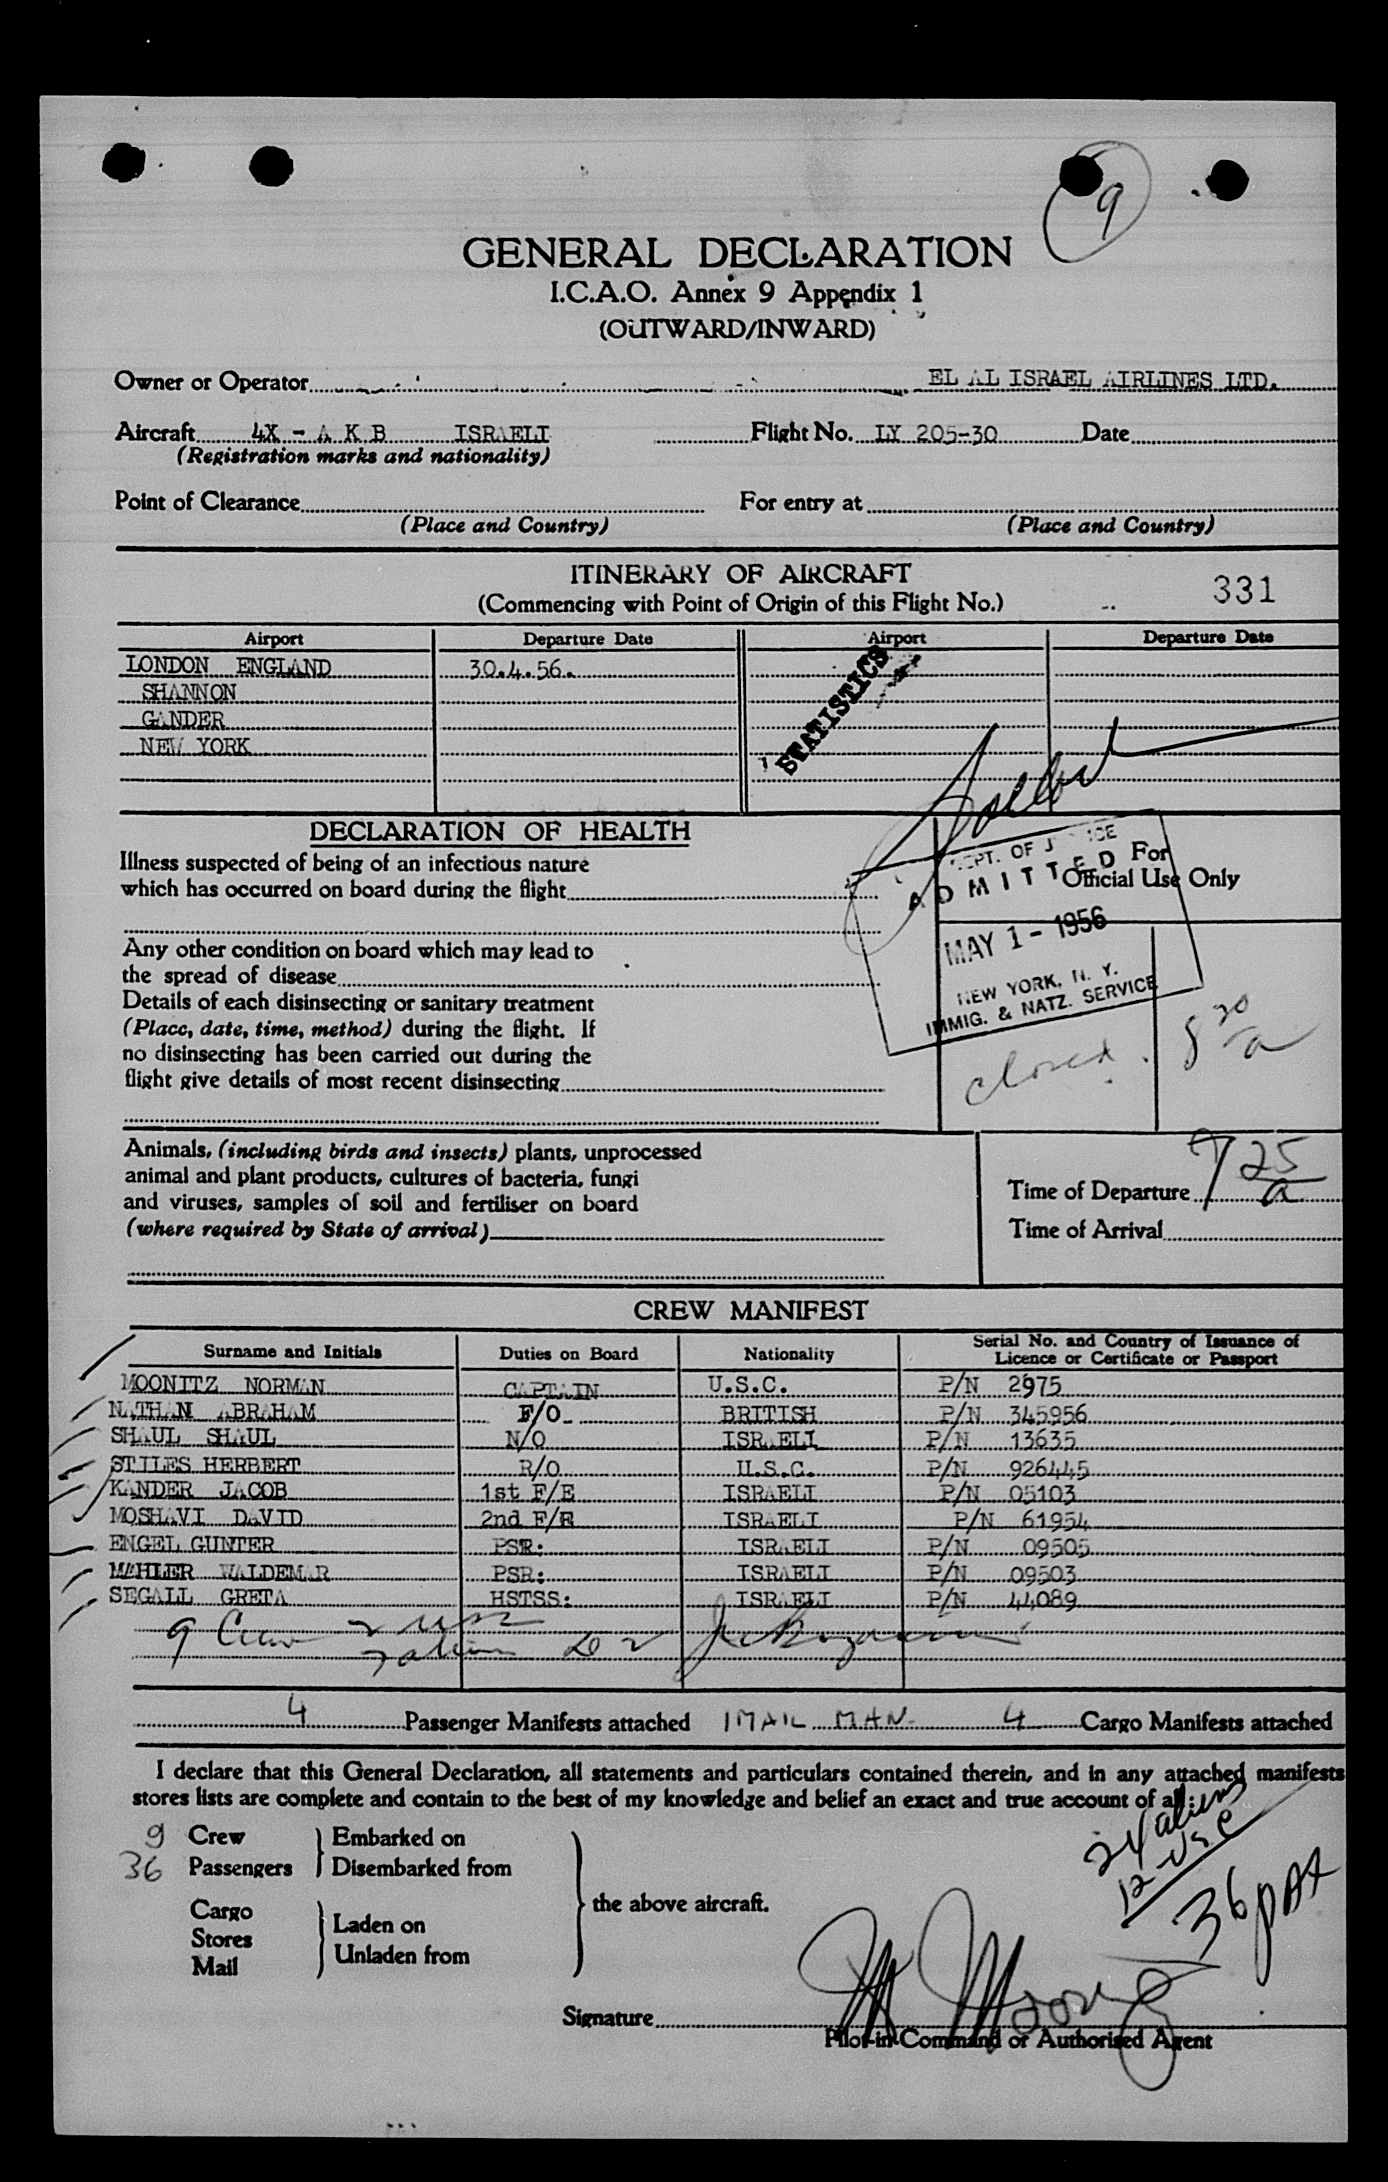 9
GENERAL DECLARATION
I.C.A.O. Annex 9 Appendix 1
(OUTWARD/INWARD)
Owner or Operator EL AL ISRAEL AIRLINES LTD.
Aircraft 4X - A K B ISRAELI Flight No. LY 205-30 Date
(Registration marks and nationality)
Point of Clearance For entry at
(Place and Country) (Place and Country)
ITINERARY OF AIRCRAFT
331
(Commencing with Point of Origin of this Flight No.)
Airport Departure Date Airport Departure Date
LONDON ENGLAND 30.4.56.
SHANNON
GANDER
NEW YORK
STATISTICS
DECLARATION OF HEALTH
Illness suspected of being of an infectious nature
which has occurred on board during the flight
For
Official Use Only
DEPT. OF JUSTICE
ADMITTED
MAY 1 - 1956
NEW YORK, N. Y.
IMMIG. & NATZ. SERVICE
closed. 8 30 a
Any other condition on board which may lead to
the spread of disease
Details of each disinsecting or sanitary treatment
(Place, date, time, method) during the flight. If
no disinsecting has been carried out during the
flight give details of most recent disinsecting
Animals, (including birds and insects) plants, unprocessed
animal and plant products, cultures of bacteria, fungi
and viruses, samples of soil and fertiliser on board
(where required by State of arrival)
Time of Departure 7 25 a
Time of Arrival
CREW MANIFEST
Surname and Initials Duties on Board Nationality Serial No. and Country of Issuance of
Licence or Certificate or Passport
MOONITZ NORMAN CAPTAIN U.S.C. P/N 2975
NATHAN ABRAHAM F/O BRITISH P/N 345956
SHAUL SHAUL N/O ISRAELI P/N 13635
STILES HERBERT R/O U.S.C. P/N 926445
KANDER JACOB 1st F/E ISRAELI P/N 05103
MOSHAVI DAVID 2nd F/E ISRAELI P/N 61954
ENGEL GUNTER PSR: ISRAELI P/N 09505
MAHLER WALDEMAR PSR: ISRAELI P/N 09503
SEGALL GRETA HSTSS: ISRAELI P/N 44089
9 Crew 2 USC
7 aliens
4 Passenger Manifests attached 1 MAIL MAN. 4 Cargo Manifests attached
I declare that this General Declaration, all statements and particulars contained therein, and in any attached manifests
stores lists are complete and contain to the best of my knowledge and belief an exact and true account of all:
9 Crew Embarked on
36 Passengers Disembarked from
the above aircraft.
Cargo
Stores
Mail
Laden on
Unladen from
24 aliens
12 USC
36 PAX
Signature
Pilot-in-Command or Authorised Agent